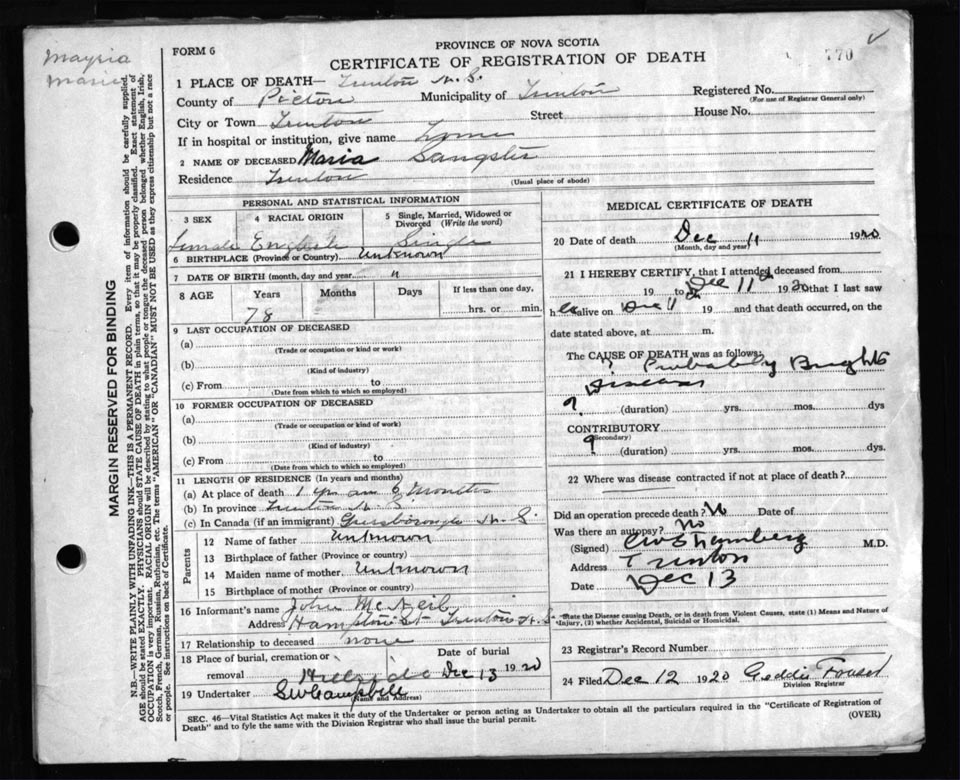 Maysia
Maria
FORM 6
PROVINCE OF NOVA SCOTIA
CERTIFICATE OF REGISTRATION OF DEATH
770
1 PLACE OF DEATH— Trenton N.S.
County of Pictou Municipality of Trenton Registered No.
(For use of Registrar General only)
City or Town Trenton Street House No.
If in hospital or institution, give name Home
2 NAME OF DECEASED Maria Sangster
Residence Trenton
(Usual place of abode)
PERSONAL AND STATISTICAL INFORMATION
3 SEX 4 RACIAL ORIGIN 5 Single, Married, Widowed or Divorced (Write the word)
female English Single
6 BIRTHPLACE (Province or Country) Unknown
7 DATE OF BIRTH (month, day and year) "
8 AGE Years Months Days If less than one day,
78 hrs. or min.
9 LAST OCCUPATION OF DECEASED
(a)
(Trade or occupation or kind or work)
(b)
(Kind of industry)
(c) From to
(Date from which to which so employed)
10 FORMER OCCUPATION OF DECEASED
(a)
(Trade or occupation or kind of work)
(b)
(Kind of industry)
(c) From to
(Date from which to which so employed)
11 LENGTH OF RESIDENCE (In years and months)
(a) At place of death 1 yr and 6 Months
(b) In province Trenton N.S
(c) In Canada (if an immigrant) Guysborough N.S.
Parents
12 Name of father Unknown
13 Birthplace of father (Province or country)
14 Maiden name of mother Unknown
15 Birthplace of mother (Province or country)
16 Informant's name John McNeil
Address Hampton St Trenton N.S.
17 Relationship to deceased none
18 Place of burial, cremation or removal Date of burial
Hillside Dec 13 1920
19 Undertaker S W Campbell
(Name and Address)
MEDICAL CERTIFICATE OF DEATH
20 Date of death Dec 11 1920
(Month, day and year)
21 I HEREBY CERTIFY, that I attended deceased from
19 to Dec 11th 1920 that I last saw
h alive on Dec 11th 19 and that death occurred, on the
date stated above, at m.
The CAUSE OF DEATH was as follows:
? Probably Brights
Disease
? (duration) yrs. mos. dys
CONTRIBUTORY
(Secondary)
? (duration) yrs. mos. dys.
22 Where was disease contracted if not at place of death?
Did an operation precede death? No Date of
Was there an autopsy? No
(Signed) M.D.
Address Trenton
Date Dec 13
State the Disease causing Death, or in death from Violent Causes, state (1) Means and Nature of
Injury, (2) whether Accidental, Suicidal or Homicidal.
23 Registrar's Record Number
24 Filed Dec 12 1920 Geddie
Division Registrar
SEC. 46—Vital Statistics Act makes it the duty of the Undertaker or person acting as Undertaker to obtain all the particulars required in the "Certificate of Registration of
Death" and to fyle the same with the Division Registrar who shall issue the burial permit.
(OVER)
MARGIN RESERVED FOR BINDING
N.B.—WRITE PLAINLY WITH UNFADING INK—THIS IS A PERMANENT RECORD. Every item of information should be carefully supplied.
AGE should be stated EXACTLY. PHYSICIANS should STATE CAUSE OF DEATH in plain terms, so that it may be properly classified. Exact statement of
OCCUPATION is very important. RACIAL ORIGIN will be described by stating to what people or tongue the deceased person belonged whether English, Irish,
Scotch, French, German, Russian, Ruthenian, etc. The terms "AMERICAN" OR "CANADIAN" MUST NOT BE USED as they express citizenship but not a race
or people. See instructions on back of Certificate.